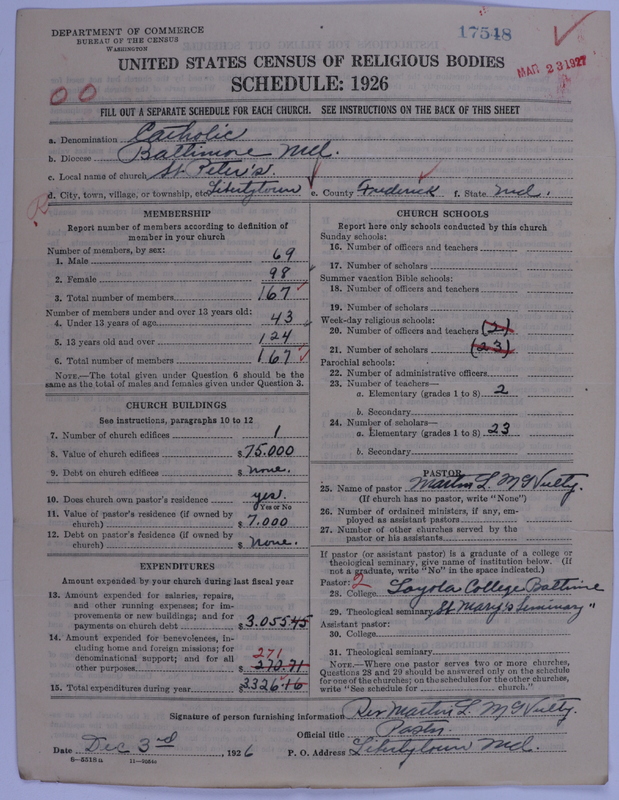 DEPARTMENT OF COMMERCE
BUREAU OF THE CENSUS
WASHINGTON
17548
MAR 23 1927
UNITED STATES CENSUS OF RELIGIOUS BODIES
SCHEDULE: 1926
00
FILL OUT A SEPARATE SCHEDULE FOR EACH CHURCH. SEE INSTRUCTIONS ON THE BACK OF THIS SHEET
a. Denomination Catholic
b. Diocese Baltimore Md.
c. Local name of church St Peter's.
d. City, town, village, or township, etc. Libertytown e. County Frederick f. State Md.
MEMBERSHIP
Report number of members according to definition of
member in your church
Number of members, by sex:
1. Male 69
2. Female 98
3. Total number of members 167
Number of members under and over 13 years old:
4. Under 13 years of age 43
5. 13 years old and over 124
6. Total number of members 167
NOTE.—The total given under Question 6 should be
same as the total of males and females given under Question 3.
CHURCH BUILDINGS
See instructions, paragraphs 10 to 12
7. Number of church edifices 1
8. Value of church edifices $75.000
9. Debt on church edifices $ none.
10. Does church own pastor's residence yes.
Yes or No
11. Value of pastor's residence (if owned by
church) $7.000
12. Debt on pastor's residence (if owned by
church) $ none.
EXPENDITURES
Amount expended by your church during last fiscal year
13. Amount expended for salaries, repairs,
and other running expenses; for im-
provements or new buildings; and for
payments on church debt $3.055 45
14. Amount expended for benevolences, in-
cluding home and foreign missions; for
denominational support; and for all
other purposes $ 270.71
271
15. Total expenditures during year $3326.16
CHURCH SCHOOLS
Report here only schools conducted by this church
Sunday schools:
16. Number of officers and teachers
17. Number of scholars
Summer vacation Bible schools:
18. Number of officers and teachers
19. Number of scholars
Week-day religious schools:
20. Number of officers and teachers (2)
21. Number of scholars (23)
Parochial schools:
22. Number of administrative officers
23. Number of teachers—
a. Elementary (grades 1 to 8) 2
b. Secondary
24. Number of scholars—
a. Elementary (grades 1 to 8) 23
b. Secondary
PASTOR
25. Name of pastor Martin L. McNulty.
(If church has no pastor, write "None")
26. Number of ordained ministers, if any, em-
ployed as assistant pastors
27. Number of other churches served by the
pastor or his assistants
If pastor (or assistant pastor) is a graduate of a college or
theological seminary, give name of institution below. (If
not a graduate, write "No" in the space indicated.)
Pastor: 2
28. College Loyola College Baltimore
29. Theological seminary St Mary's Seminary "
Assistant pastor:
30. College
31. Theological seminary
NOTE.—Where one pastor serves two or more churches,
Questions 28 and 29 should be answered only on the schedule
for one of the churches; on the schedules for the other churches,
write "See schedule for church."
Signature of person furnishing information Rev Martin L. McNulty.
Official title Pastor.
Date Dec 3rd, 1926 P. O. Address Libertytown Md.
8—5318a 11—9054a